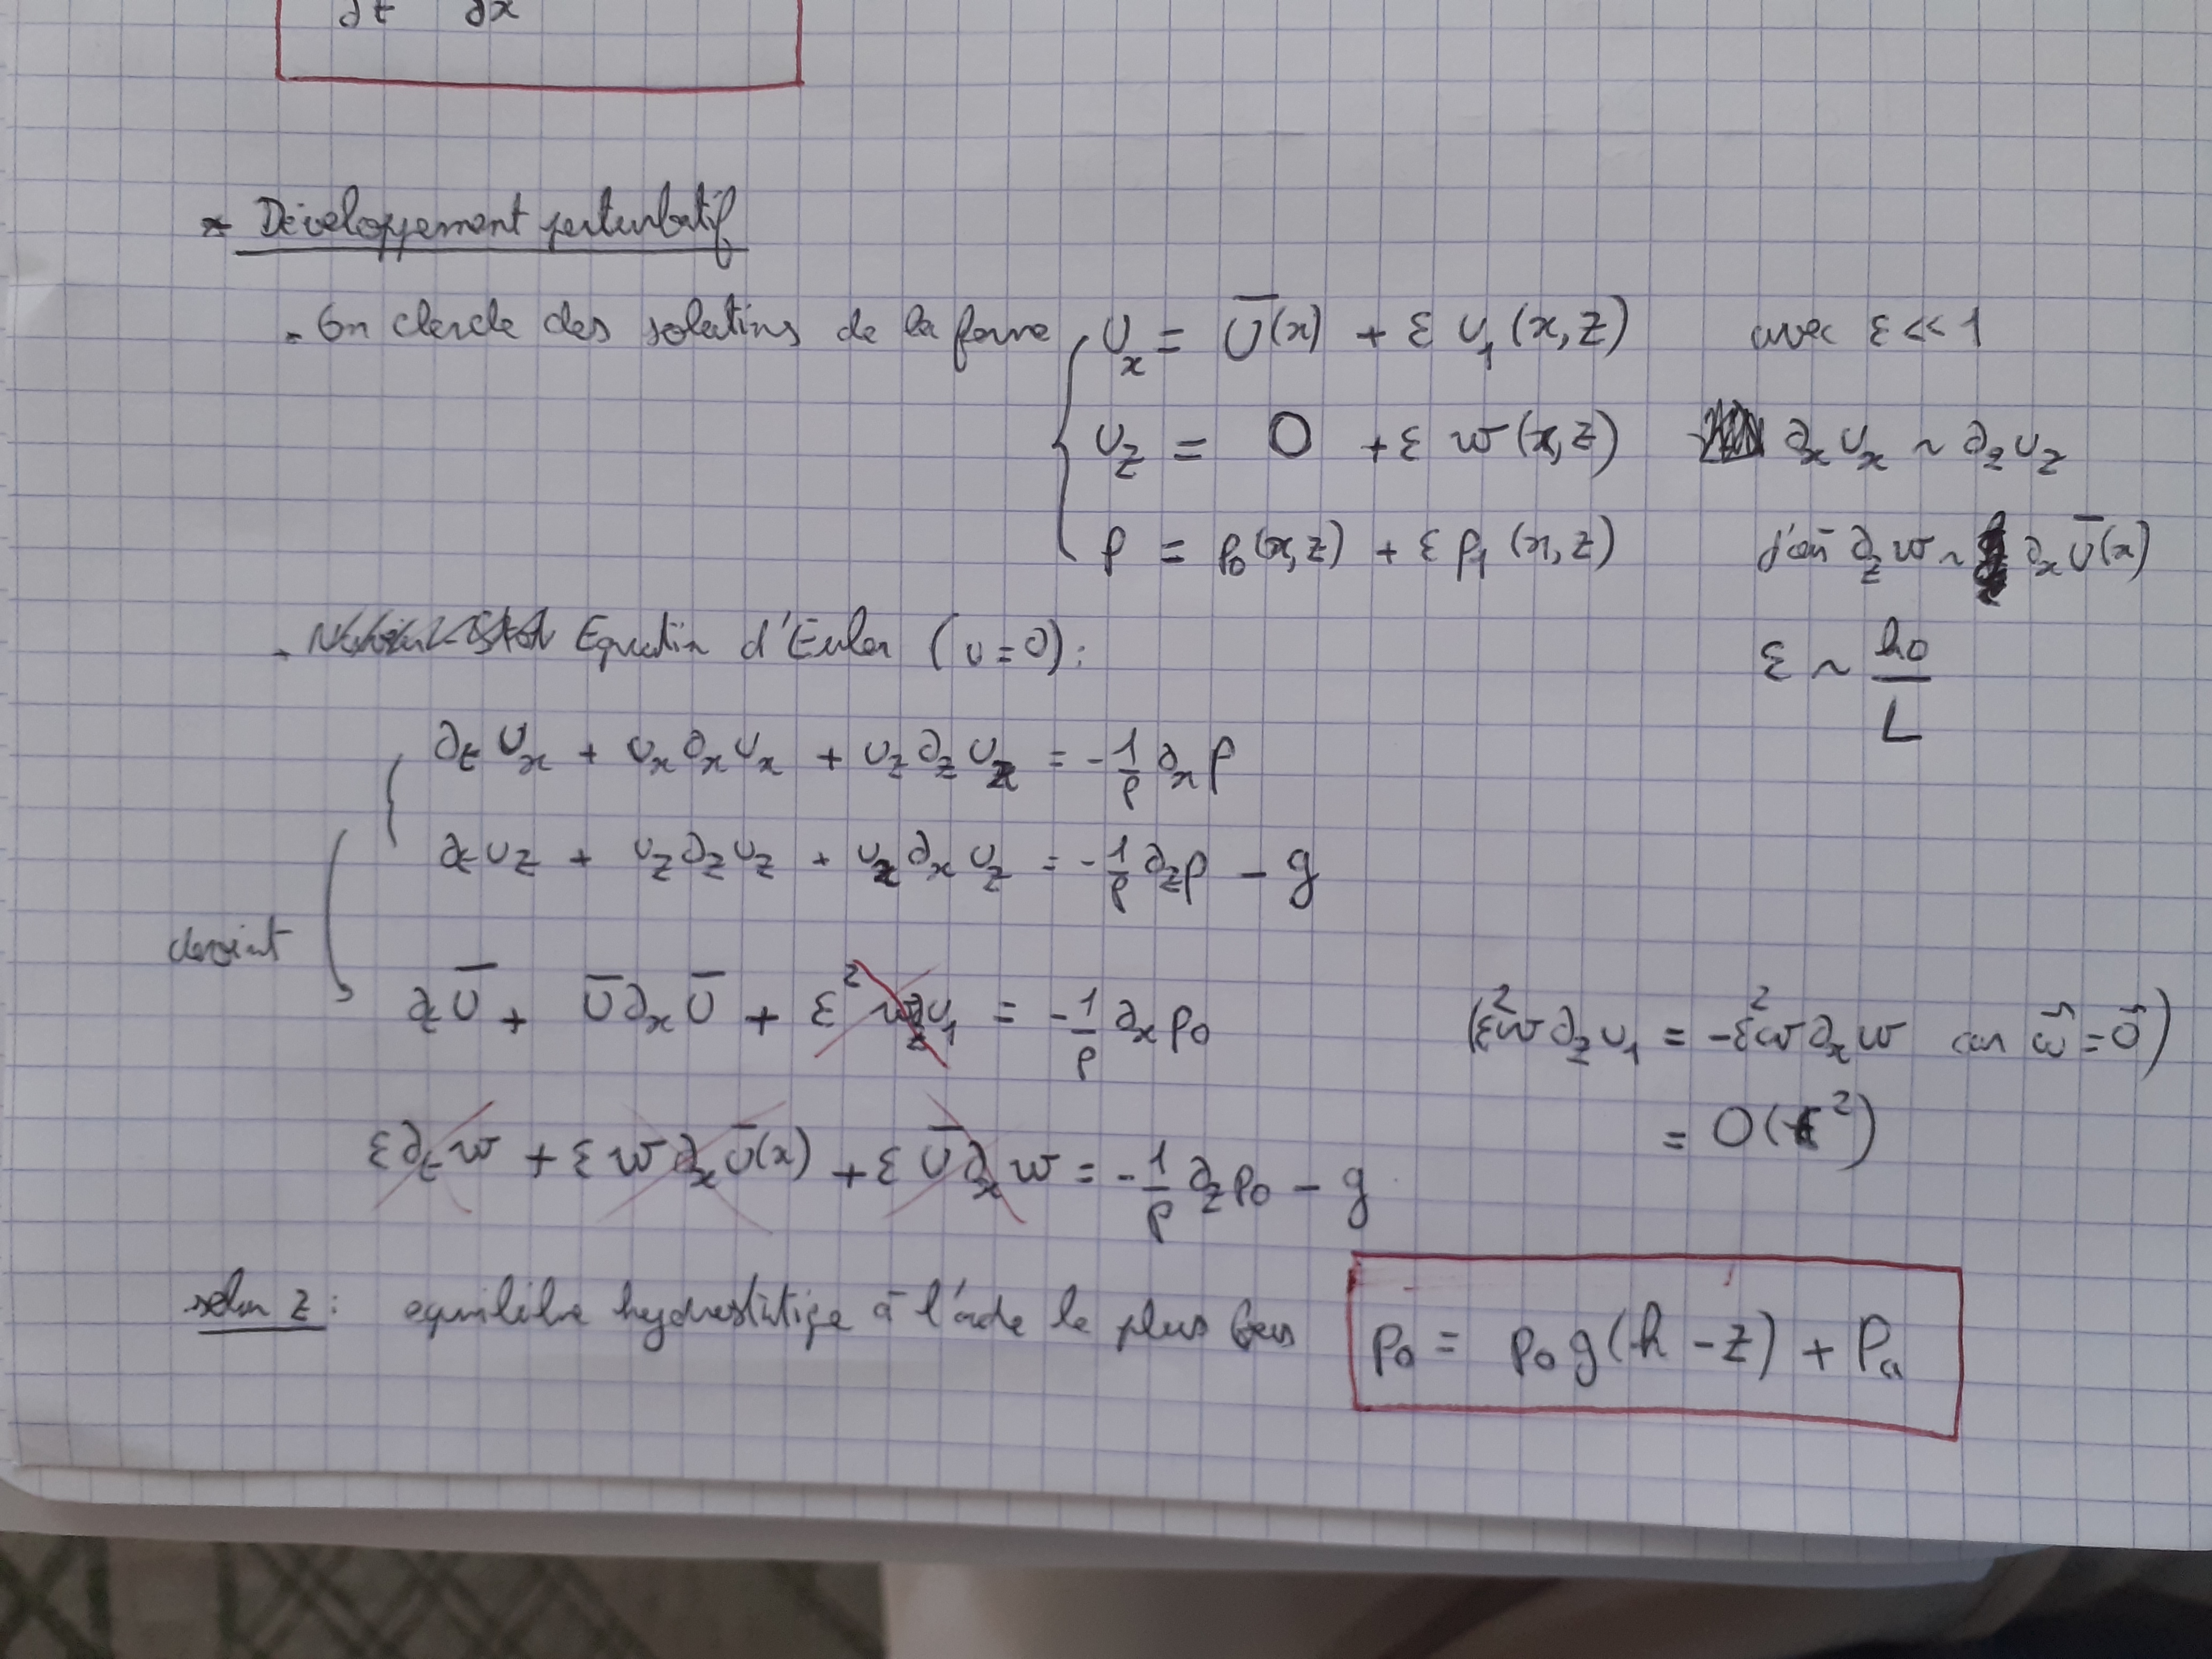 ∂t ∂x
* Développement perturbatif
- On cherche des solutions de la forme { Ux = U̅(x) + ε u₁(x,z) avec ε << 1
Uz = 0 + ε w(x,z) ∂x Ux ~ ∂z Uz
p = p₀(x,z) + ε p₁(x,z) d'où ∂z w ~ ∂x U̅(x)
- Equation d'Euler (ν=0) :
ε ~ h₀/L
∂t Ux + Ux ∂x Ux + Uz ∂z Ux = -1/ρ ∂x p
∂t Uz + Uz ∂z Uz + Ux ∂x Uz = -1/ρ ∂z p - g
devient
∂t U̅ + U̅ ∂x U̅ + ε² w ∂z u₁ = -1/ρ ∂x p₀ (ε² w ∂z u₁ = -ε² w ∂x w car ω⃗ = 0⃗)
= O(ε²)
ε ∂t w + ε w ∂x U̅(x) + ε U̅ ∂x w = -1/ρ ∂z p₀ - g
selon z : equilibre hydrostatique à l'ordre le plus bas p₀ = ρ₀ g(h - z) + Pa